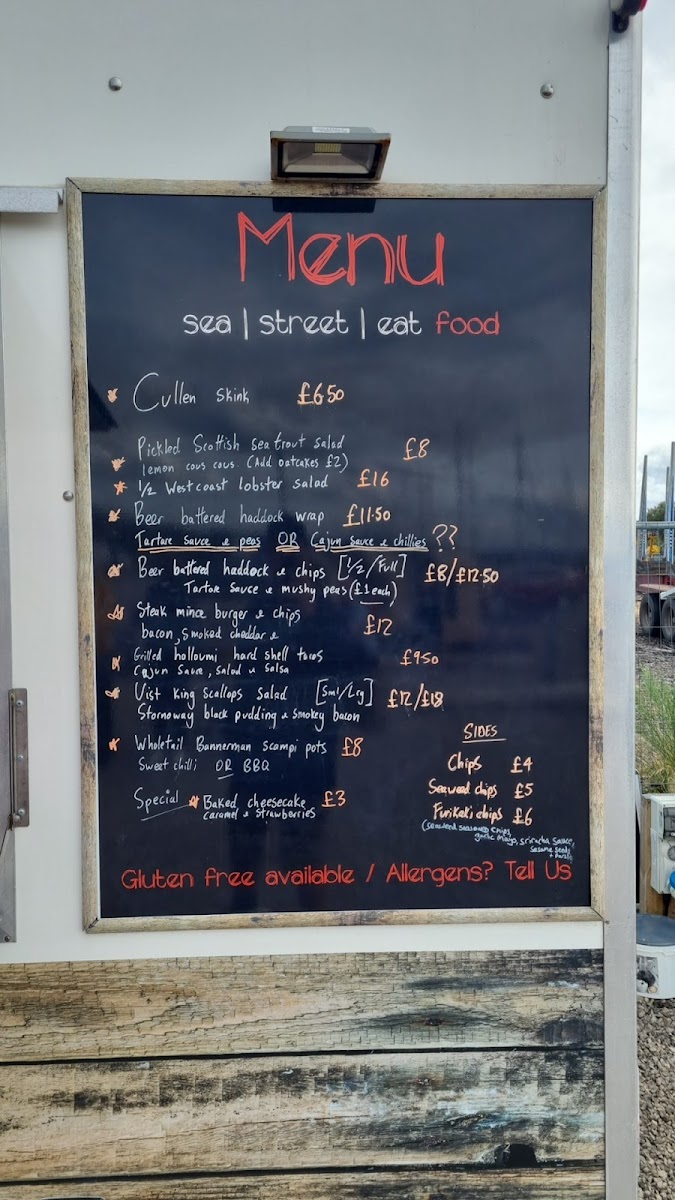 Menu
sea | street | eat food
Cullen Skink £6.50
Pickled Scottish sea trout salad £8
lemon cous cous (Add oatcakes £2)
1/2 West coast lobster salad £16
Beer battered haddock wrap £11.50
Tartare Sauce & peas OR Cajun Sauce & chillies ??
Beer battered haddock & chips [1/2/Full] £8/£12.50
Tartare Sauce & mushy peas (£1 each)
Steak mince burger & chips £12
bacon, Smoked cheddar &
Grilled holloumi hard shell tacos £9.50
Cajun Sauce, Salad & Salsa
Uist King Scallops Salad [Sml/Lrg] £12/£18
Stornoway black pudding & smokey bacon
Wholetail Bannerman scampi pots £8
Sweet chilli OR BBQ
Special Baked cheesecake £3
caramel & strawberries
SIDES
Chips £4
Seaweed chips £5
Furikaki chips £6
(seaweed seasoned chips,
garlic mayo, sriracha sauce,
sesame seeds
Gluten free available / Allergens? Tell Us